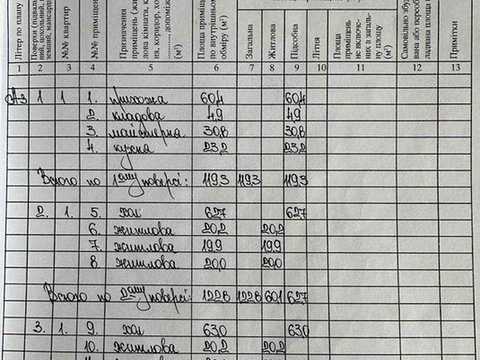 Літер по плану | Поверхи | №№ квартир | №№ приміщен | Призначення приміщень | Площа приміщ по внутрішньому обміру (м²) | Загальна | Житлова | Підсобна | Літня | Площа приміщень не включених в загальну площу (м²) | Самовільно | Примітки
1 2 3 4 5 6 7 8 9 10 11 12 13
А3 1 1 1. прихожа 60,4 60,4
2. кладова 4,9 4,9
3. майстерна 30,8 30,8
4. кухна 23,2 23,2
Всього по 1ому поверсі: 119,3 119,3 119,3
2. 1. 5. хол 62,7 62,7
6. житлова 20,2 20,2
7. житлова 19,9 19,9
8. житлова 20,0 20,0
Всього по 2ому поверсі: 122,8 122,8 60,1 62,7
3. 1. 9. хол 63,0 63,0
10. житлова 20,2 20,2